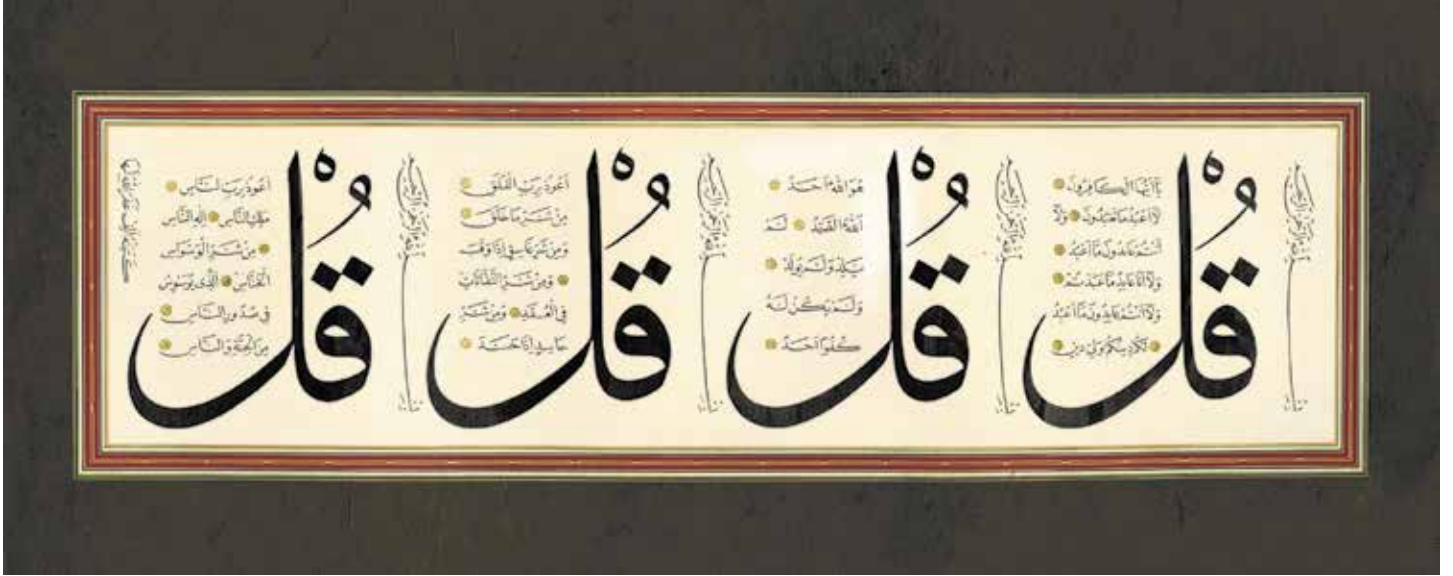 بسم الله الرحمن الرحيم
قُلْ
يَا أَيُّهَا الْكَافِرُونَ
لَا أَعْبُدُ مَا تَعْبُدُونَ وَلَا
أَنْتُمْ عَابِدُونَ مَا أَعْبُدُ
وَلَا أَنَا عَابِدٌ مَا عَبَدْتُمْ
وَلَا أَنْتُمْ عَابِدُونَ مَا أَعْبُدُ
لَكُمْ دِينُكُمْ وَلِيَ دِينِ
بسم الله الرحمن الرحيم
قُلْ
هُوَ اللهُ أَحَدٌ
اَللهُ الصَّمَدُ لَمْ
يَلِدْ وَلَمْ يُولَدْ
وَلَمْ يَكُنْ لَهُ
كُفُوًا أَحَدٌ
بسم الله الرحمن الرحيم
قُلْ
أَعُوذُ بِرَبِّ الْفَلَقِ
مِنْ شَرِّ مَا خَلَقَ
وَمِنْ شَرِّ غَاسِقٍ إِذَا وَقَبَ
وَمِنْ شَرِّ النَّفَّاثَاتِ
فِي الْعُقَدِ وَمِنْ شَرِّ
حَاسِدٍ إِذَا حَسَدَ
بسم الله الرحمن الرحيم
قُلْ
أَعُوذُ بِرَبِّ النَّاسِ
مَلِكِ النَّاسِ إِلَهِ النَّاسِ
مِنْ شَرِّ الْوَسْوَاسِ
الْخَنَّاسِ الَّذِي يُوَسْوِسُ
فِي صُدُورِ النَّاسِ
مِنَ الْجِنَّةِ وَالنَّاسِ